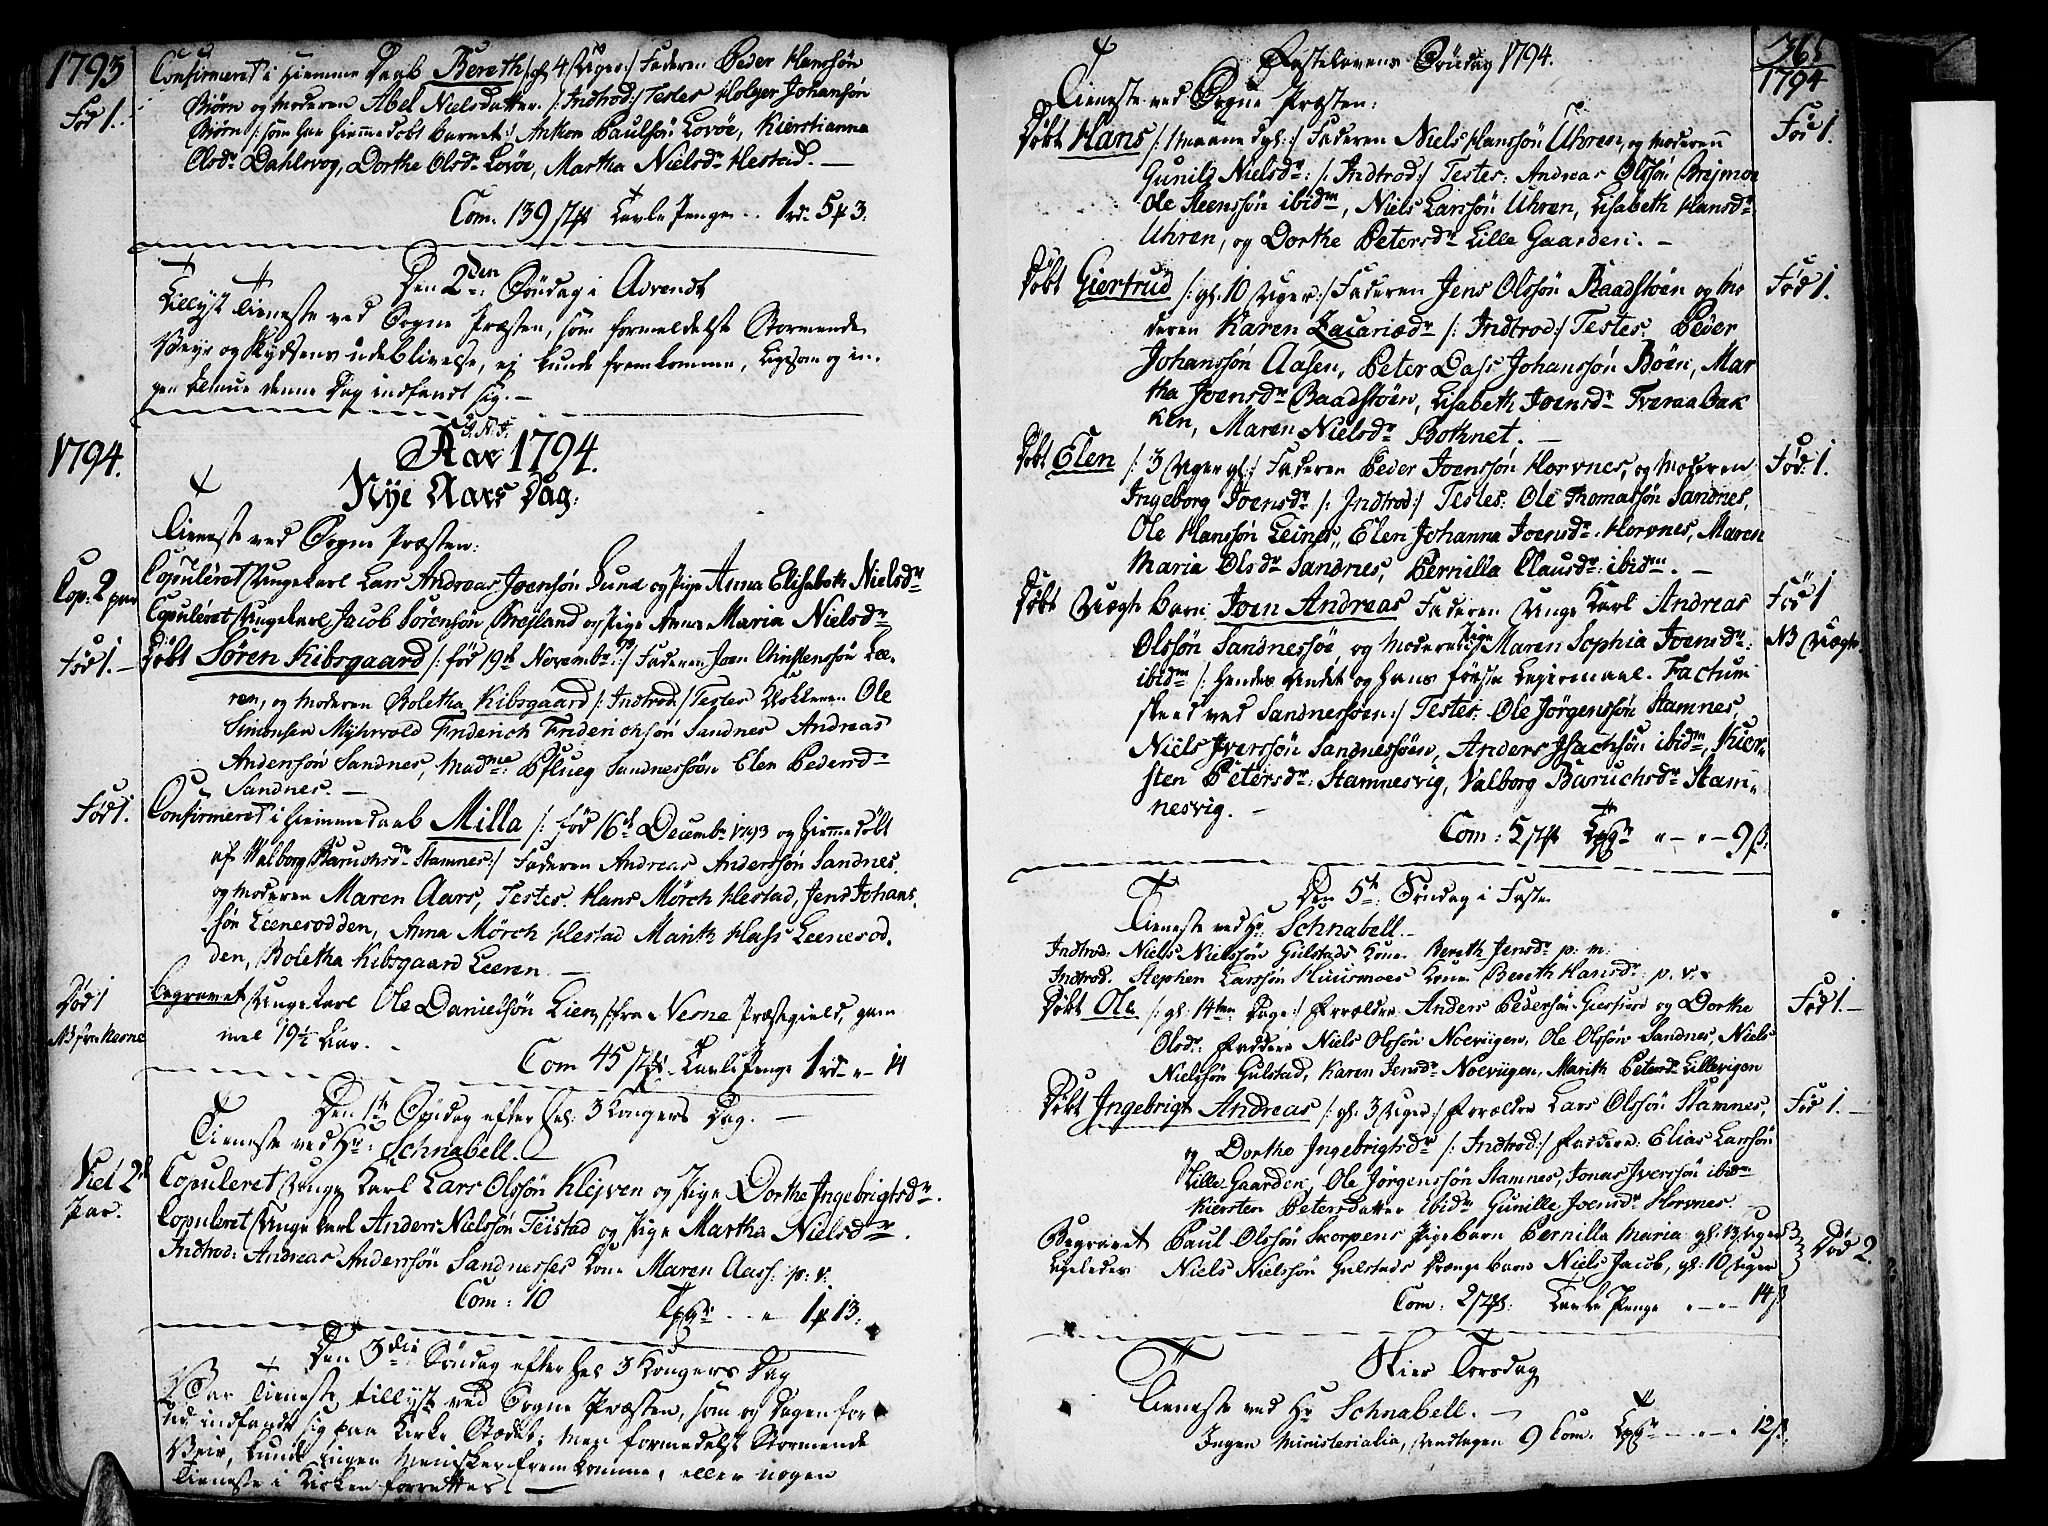 1793
Confirmeret i Hiemme Daab Bereth /: gl. 4 Uger :/ Faderen Peder Hanssøn
Fød 1.
Biørn og Moderen Abel Nielsdatter /: Indtrod :/ Testes Holger Johansøn
Biørn /: som har hiemmedøbt barnet :/ Anton Paulsøn Lovøe, Kierstianna
Olsdr Dahlsvog, Dorthe Olsdr Lovøe, Martha Nielsdr Hestad. —
Com. 139 Tavle Penge .. 1 rd 5 3:
Den 2den Søndag i Advendt
Tillyst Tieneste ved Sogne Præsten, som formedelst Stormende
Veyr og Skydsens udeblivelse, ej kunde fremkomme, ligesom og in-
gen Almue denne Dag indfandt sig. —
1794.
J. N. J.
Aar 1794.
Nye Aars Dag:
Tieneste ved Sogne Præsten:
Cop: 2 par
Copuleret Ungekarl Lars Andreas Joensøn Sund og Pige Anna Elisabeth Nielsdr
Copuleret Ungekarl Jacob Sørensøn Bresland og Pige Anna Maria Nielsdr
Fød 1. —
Døbt Søren Kibsgaard /: fød 19d Novembr :/ Faderen Joen Christensøn Lee-
ren, og Moderen Boletha Kibsgaard /: Indtrod :/ Testes Klokkeren Ole
Simonsen Myhrvold Friderich Friderichsøn Sandnes Andreas
Andersøn Sandnes, Madme Pflueg Sandnessøen Elen Pedersdr
Sandnes. —
Fød 1.
Confirmeret i Hiemmedaab Milla /: fød 16d Decembr 1793 og hiemmedøbt
af Valborg Baruchsdr Stamnes :/ Faderen Andreas Anderssøn Sandnes
og Moderen Maren Aars, Testes. Hans Mørch Hestad, Jens Johans
søn Leenesodden, Anna Mørch Hestad Marith Hass Leenesod-
den, Boletha Kibsgaard Leeren —
Død 1
NB fra Nesne
Begravet Ungekarl Ole Danielsøn Lien, fra Nesne Præstegield, gam
mel 19½ Aar. —
Com 45 Tavle Penge 1 rd " 14
Den 1te Søndag efter Hel: 3 Kongers Dag. —
Tieneste ved Hr: Schnabell.
Viet 2de
Par.
Copuleret Unge Karl Lars Olssøn Klejven og Pige Dorthe Ingebrigtsdr.
Copuleret Unge Karl Anders Nielssøn Teistad og Pige Martha Nielsdr.
Indtrod: Andreas Anderssøn Sandnesses Kone Maren Aars: p: v:
Com: 10 .. " 1 13.
Den 3die Søndag efter Hel 3 Kongers Dag
Var Tieneste tillyst ved Sogne Præsten, som og Dagen for
ud indfandt sig paa Kirke Stædet; men formedelst Stormende
Veir, kunde ingen Mennisker fremkomme, eller nogen
Tieneste i Kirken forrettes. —
365
1794
Fastelavens Søndag 1794.
Tieneste ved Sogne Præsten:
Døbt Hans /: 1 Maaned gl: :/ Faderen Niels Hanssøn Uhren, og Moderen
Fød 1.
Gunild Nielsdr: /: Indtrod :/ Testes: Andreas Olssøn Brejmoe
Ole Steenssøn ibidm, Niels Larssøn Uhren, Lisabeth Hansdr
Uhren, og Dorthe Petersdr Lille Gaarden. —
Døbt Giertrud /: gl. 10 Uger :/ Faderen Jens Olssøn Baadstøen og Mo
Fød 1.
deren Karen Zacariædr /: Indtrod :/ Testes. Peder
Johanssøn Aasen, Peter Dass Johanssøn Bøen, Mar
tha Joensdr Baadstøen, Lisabeth Joensdr Tveraabak
ken, Maren Nielsdr Bothnet. —
Døbt Elen /: 3 Uger gl: :/ Faderen Peder Joenssøn Horvnes, og Moderen
Fød: 1.
Ingeborg Joensdr /: Indtrod :/ Testes: Ole Thomassøn Sandnes,
Ole Hanssøn Leines, Elen Johanna Joensdr: Horvnes, Maren
Maria Olsdr Sandnes, Pernilla Clausdr: ibidm. —
Døbt Uægte Barn Joen Andreas Faderen Unge Karl Andreas
Fød 1
NB Uægte
Olssøn Sandnessøe og Moderen Pige Maren Sophia Joensdr:
ibidm /: hendes Andet og hans første Leyermaal. Factum
skeed ved Sandnessøen :/ Testes: Ole Jørgenssøn Stamnes,
Niels Iverssøn Sandnessøen, Anders Isachsøn ibidm, Kier-
sten Petersdr: Stamnesvig, Valborg Baruchsdr Stam-
nesvig. —
Com: 52 " - " - 9 ß:
Den 5te: Søndag i Faste
Tieneste ved Hr: Schnabell. —
Indtrod: Niels Nielssøn Gulstads Kone Bereth Jensdr p: v:
Indtrod. Stephen Larssøn Huusmoes Kone Bereth Hansdr: p. v.
Døbt Ole /: gl: 14ten Dage :/ Forældre Anders Pedersøn og Dorthe
Fød 1. —
Olsdr: Faddere Niels Olssøn Noeviigen, Ole Olssøn Sandnes, Niels
Nielssøn Gulstad, Karen Jensdr Noeviigen, Marith Petersdr Lillevigen
Døbt Ingebrigt Andreas /: gl: 3 Uger :/ Forældre Lars Olssøn Stamnes,
Fød 1. —
og Dorthe Ingebrigtsdr /: Indtrod :/ Faddere: Elias Larssøn
Lille Gaarden, Ole Jørgenssøn Stamnes, Jonas Iverssøn ibidm
Kiersten Petersdatter ibidm Gunille Joensdr Horvnes.
Begravet Paul Olssøn Skorpens Pigebarn Pernilla Maria gl. 13 Uger
Død 2.
Ligeledes Niels Nielssøn Gulstads Drænge barn Niels Jacob, gl: 10 Uger
Com: 2 Tavle Penge " - " - 14 ß
Skier Torsdag
Tieneste ved Hr Schnabell. —
Ingen Ministerialia, undtagen 9 Com. " 12 ß.